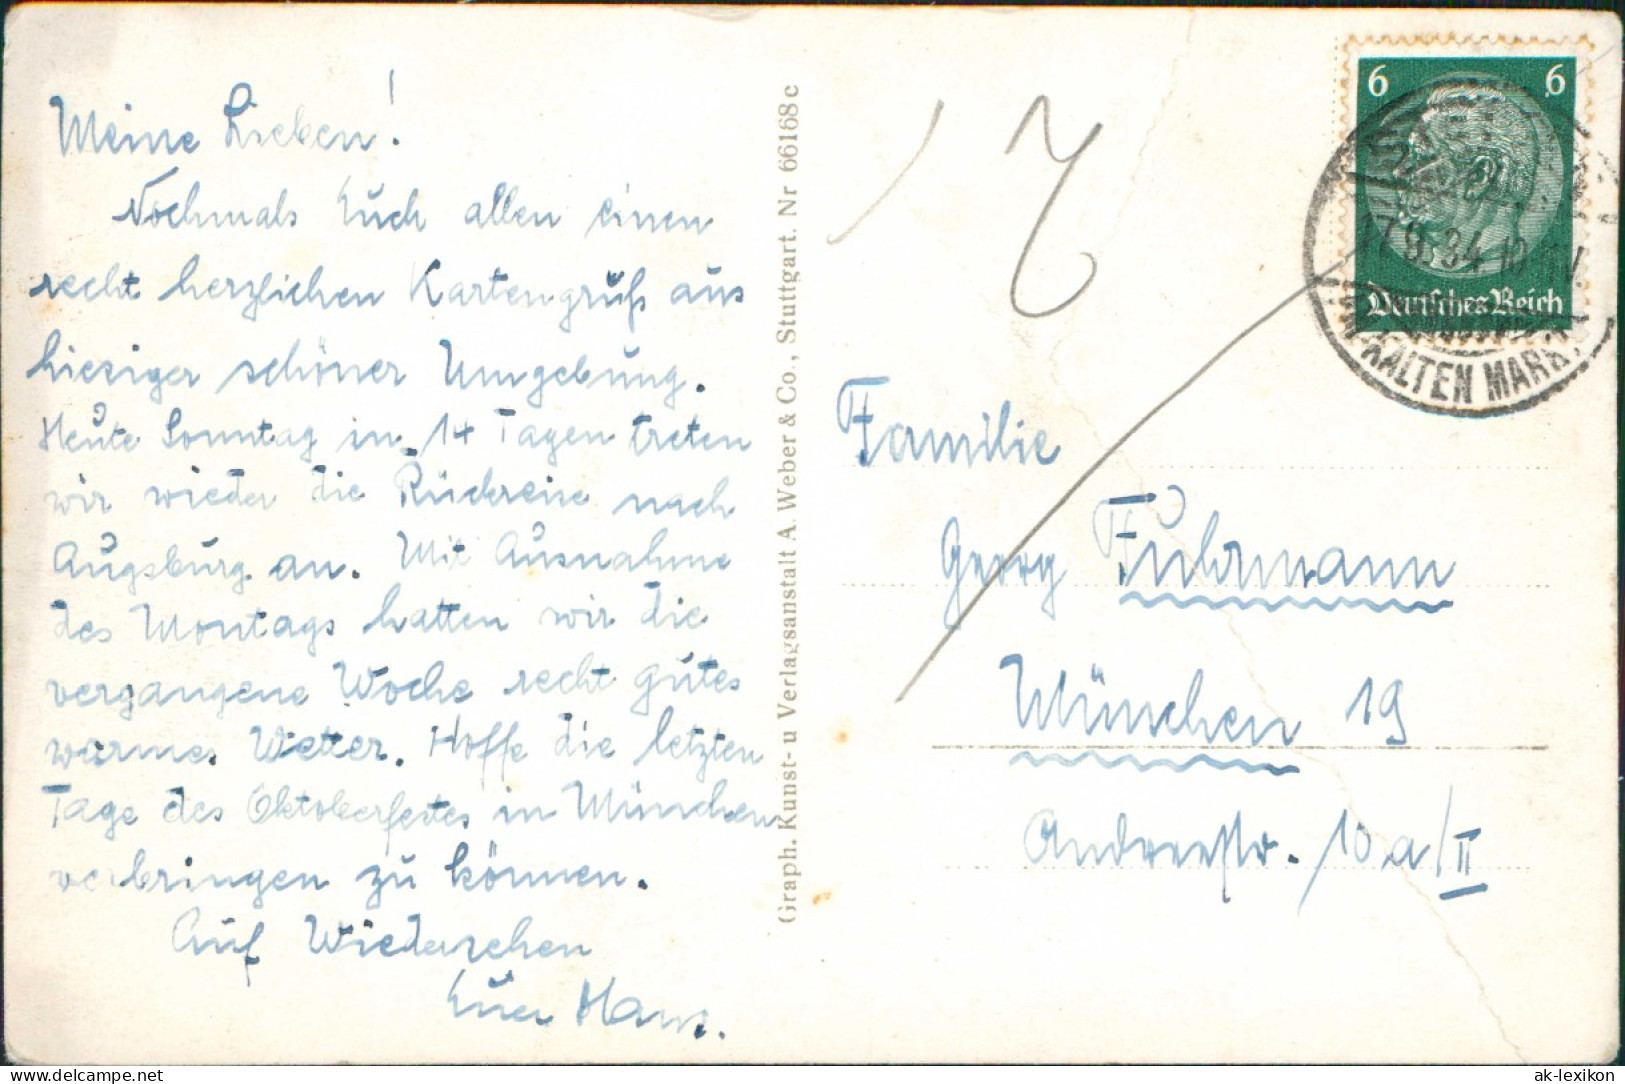 Meine Lieben!
Nochmals Euch allen einen
recht herzlichen Kartengruß aus
hiesiger schöner Umgebung.
Heute Sonntag in 14 Tagen treten
wir wieder die Rückreise nach
Augsburg an. Mit Ausnahme
des Montags hatten wir die
vergangene Woche recht gutes
warmes Wetter. Hoffe die letzten
Tage des Oktoberfestes in München
verbringen zu können.
Auf Wiedersehen
Euer Hans.
Graph. Kunst- u Verlagsanstalt A. Weber & Co., Stuttgart. Nr 66168c
6 6
17.9.34
Deutsches Reich
KALTEN MARKT
Familie
Georg Fuhrmann
München 19
Andreestr. 10 a/II
www.delcampe.net
ak-lexikon